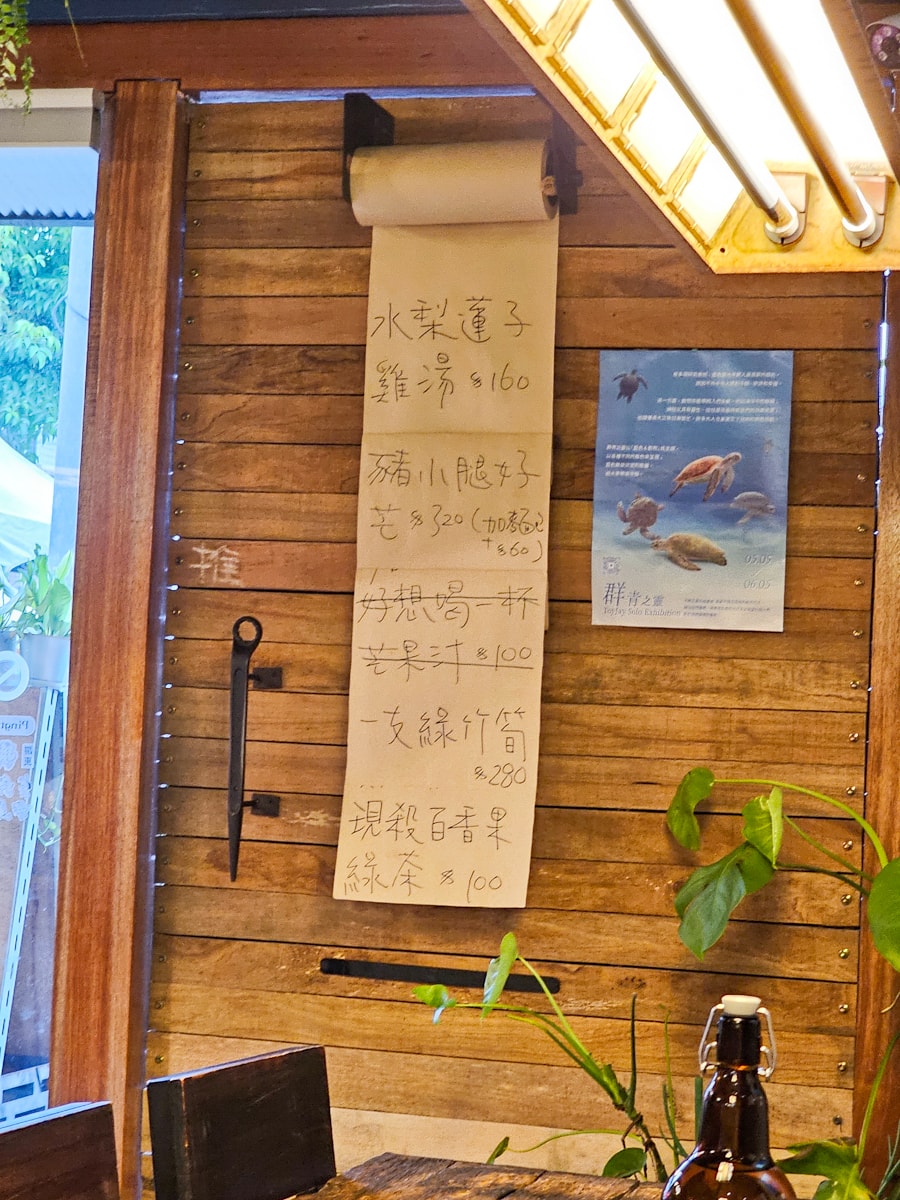 水梨蓮子
雞湯 $160
豬小腿好
芒 $320 (加麵包
+$60)
好想喝一杯
芒果汁 $100
一支綠竹筍
$280
現殺百香果
綠茶 $100
推
群青之靈
Toyjay Solo Exhibition
05.05
06.05